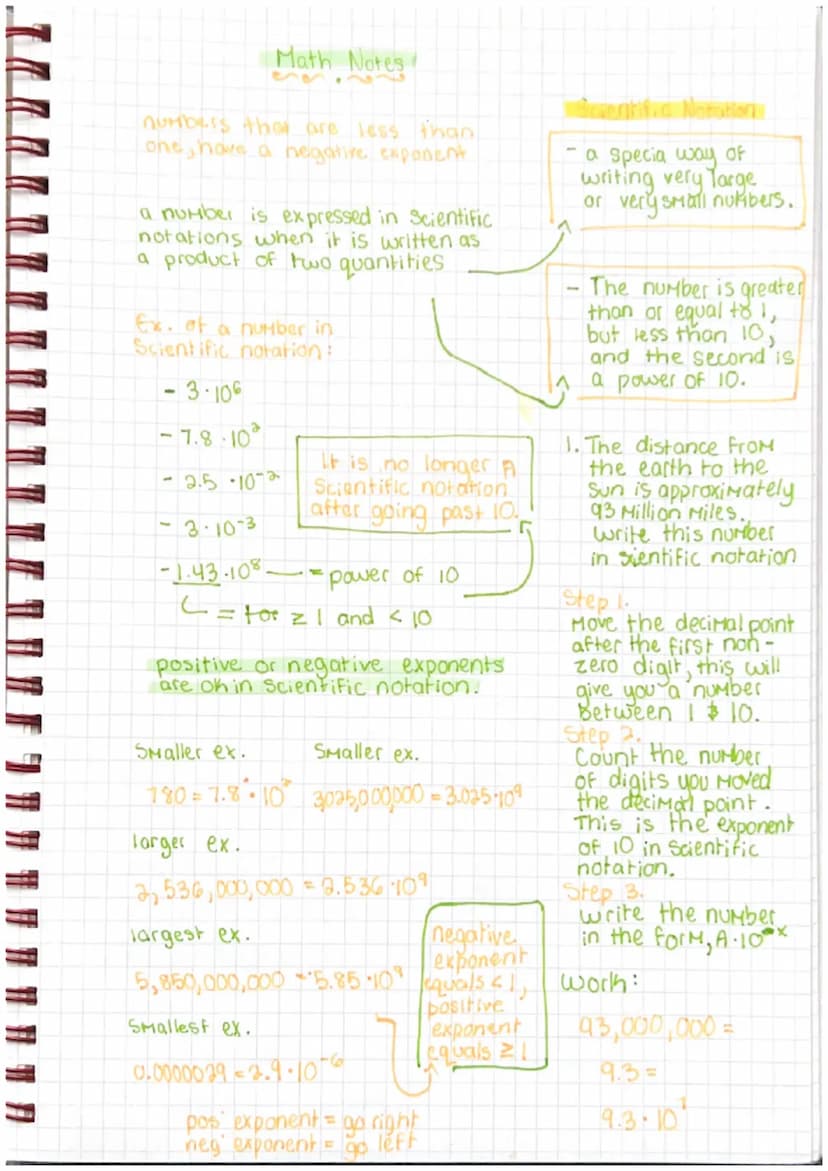 Math Notes
numbers that are less than
one, have a negative exponent
a number is expressed in Scientific
notations when it is written as
a product of two quantities
Ex. of a number in
Scientific notation:
- 3·10⁶
- 7.8·10²
- 2.5·10⁻²
- 3·10⁻³
- 1.43·10⁸ — = power of 10
= for ≥ 1 and < 10
It is no longer a
Scientific notation
after going past 10.
positive or negative exponents
are ok in Scientific notation.
Smaller ex. Smaller ex.
780 = 7.8·10² 3,025,000,000 = 3.025·10⁹
larger ex.
2,536,000,000 = 2.536·10⁹
largest ex.
5,850,000,000 = 5.85·10⁹
Smallest ex.
0.0000029 = 2.9·10⁻⁶
negative
exponent
equals < 1,
positive
exponent
equals ≥ 1
pos' exponent = go right
neg' exponent = go left
Scientific Notation
- a specia way of
writing very large
or very small numbers.
- The number is greater
than or equal to 1,
but less than 10,
and the second is
a power of 10.
1. The distance from
the earth to the
Sun is approximately
93 Million Miles.
Write this number
in sientific notation
Step 1.
Move the decimal point
after the first non-
zero digit, this will
give you a number
between 1 & 10.
Step 2.
Count the number
of digits you moved
the decimal point.
This is the exponent
of 10 in Scientific
notation.
Step 3.
Write the number
in the form, A·10ˣ
Work:
93,000,000 =
9.3 =
9.3·10⁷